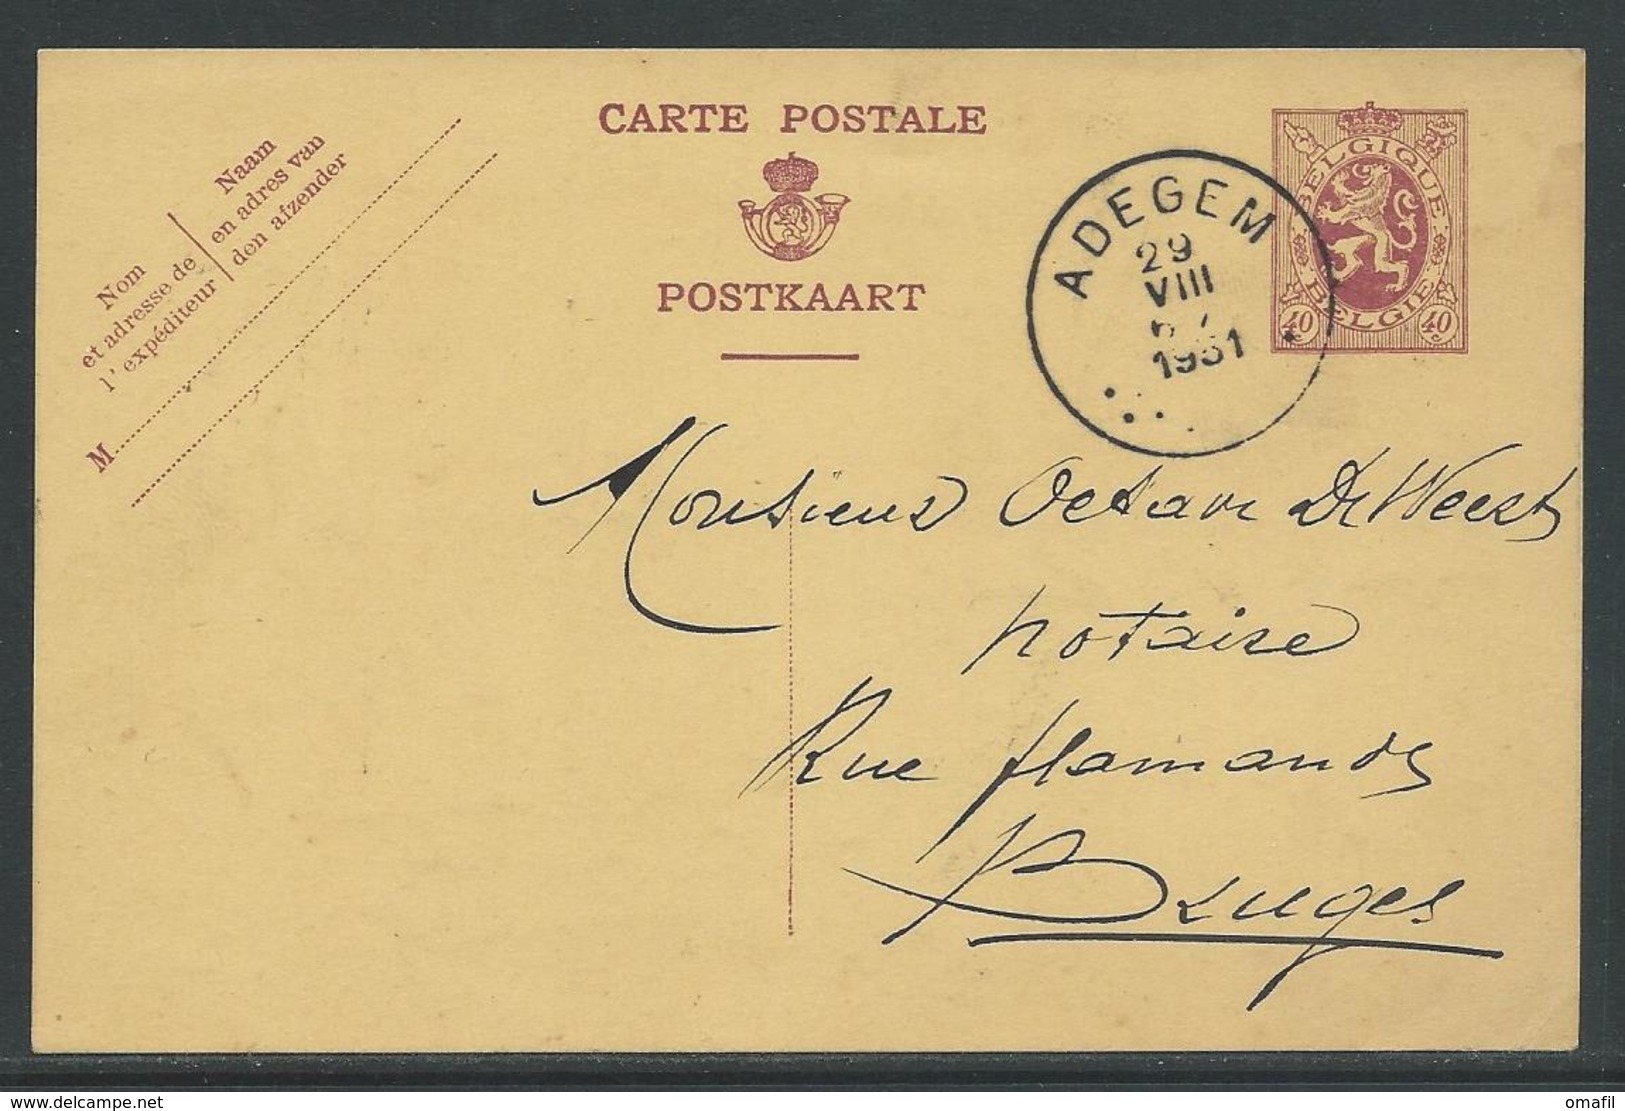 CARTE POSTALE
POSTKAART
Nom
et adresse de
l'expéditeur
Naam
en adres van
den afzender
M
BELGIQUE
BELGIË
40 c
40 c
ADEGEM
29
VIII
1931
Monsieur Octave De Weerdt
notaire
Rue flamande
Bruges
www.delcampe.net
omafil